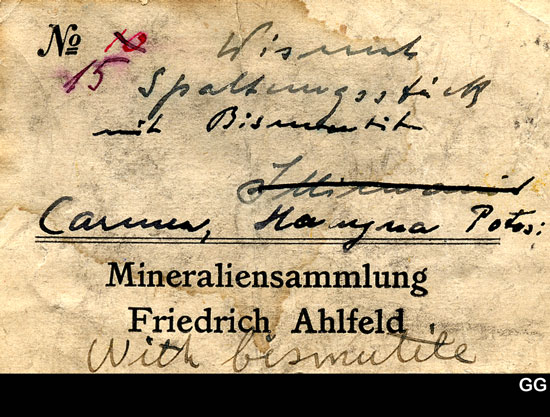 No 10
15
Wismut
Spaltungsstück
mit Bismutit
Illimani
Carmen, Huayna Potosi
Mineraliensammlung
Friedrich Ahlfeld
With bismutite
GG